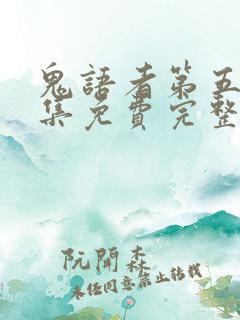 鬼語者第五
集免費完整
阮開森
未經同意禁止轉載